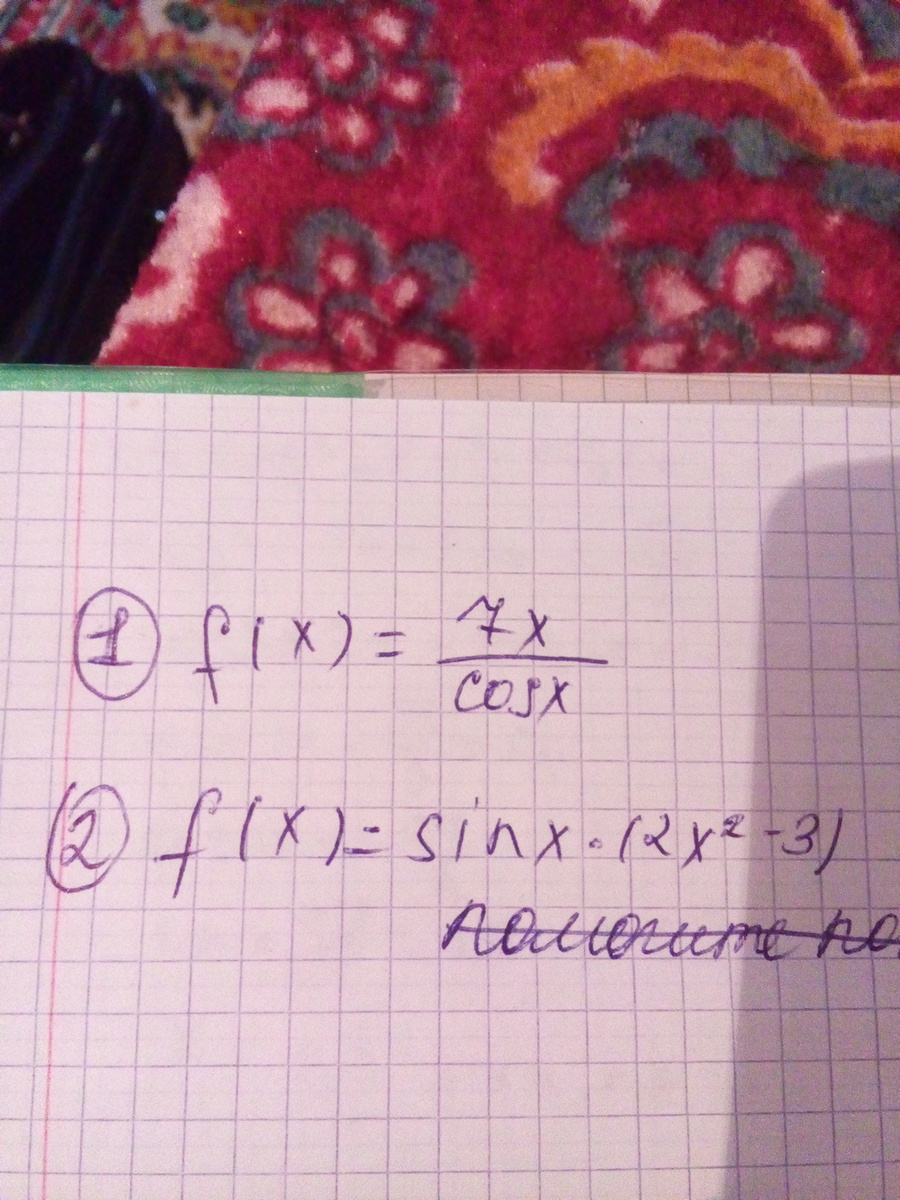 ① f(x) = 7x / cosx
② f(x) = sinx · (2x² - 3)
помогите